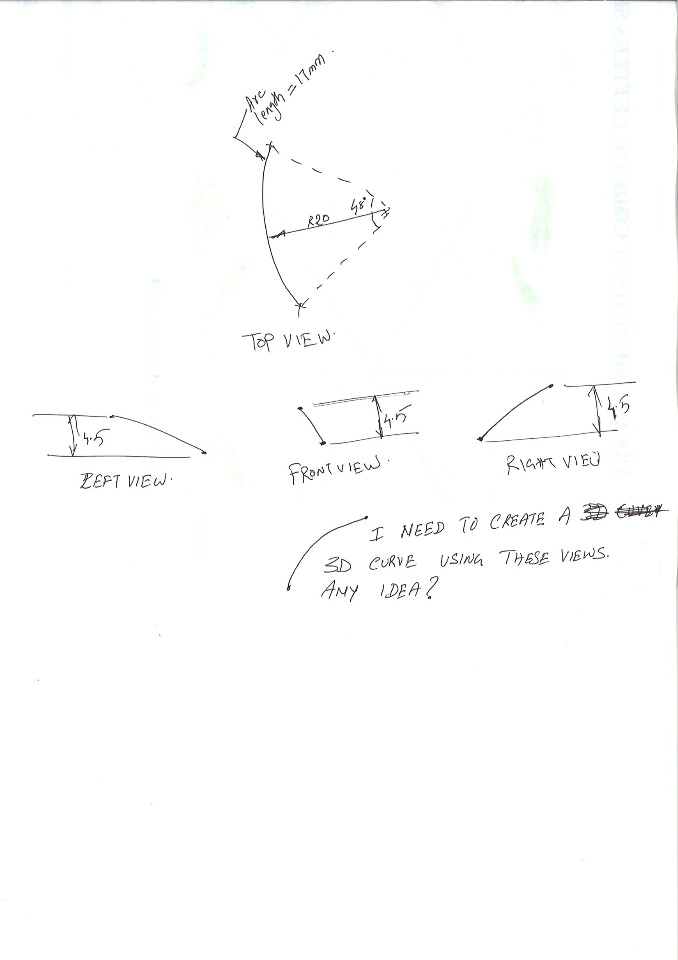 Arc
length = 17mm.
48°
R20
TOP VIEW.
4.5
4.5
4.5
LEFT VIEW.
FRONT VIEW.
RIGHT VIEW
I NEED TO CREATE A
3D CURVE USING THESE VIEWS.
ANY IDEA?